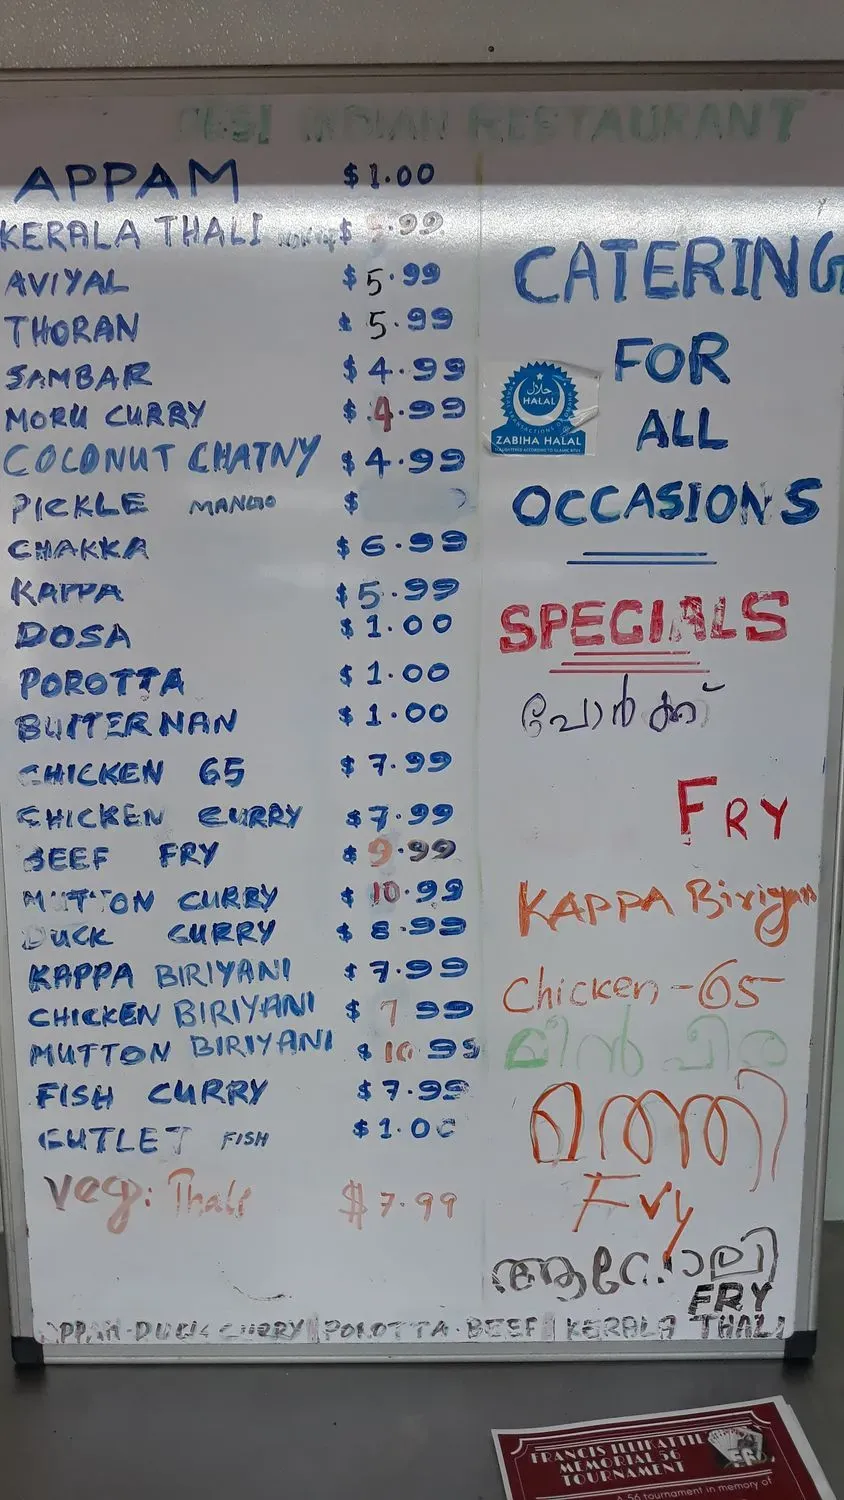 DESI INDIAN RESTAURANT
APPAM $1.00
KERALA THALI $ .99
AVIYAL $5.99
THORAN $5.99
SAMBAR $4.99
MORU CURRY $4.99
COCONUT CHATNY $4.99
PICKLE MANGO $
CHAKKA $6.99
KAPPA $5.99
DOSA $1.00
POROTTA $1.00
BUTTER NAN $1.00
CHICKEN 65 $7.99
CHICKEN CURRY $7.99
BEEF FRY $9.99
MUTTON CURRY $10.99
DUCK CURRY $8.99
KAPPA BIRIYANI $7.99
CHICKEN BIRIYANI $7 99
MUTTON BIRIYANI $10.99
FISH CURRY $7.99
CUTLET FISH $1.00
Veg: Thali $7.99
CATERING
FOR
ALL
OCCASIONS
حلال
HALAL
ZABIHA HALAL
SPECIALS
പോർക്ക്
FRY
KAPPA Biriyani
Chicken-65
മീൻ പീര
മത്തി
Fry
ആവോലി
FRY
APPAM-DUCK CURRY | POROTTA-BEEF | KERALA THALI
FRANCIS ILLIKATTIL
MEMORIAL 56
TOURNAMENT
A 56 tournament in memory of